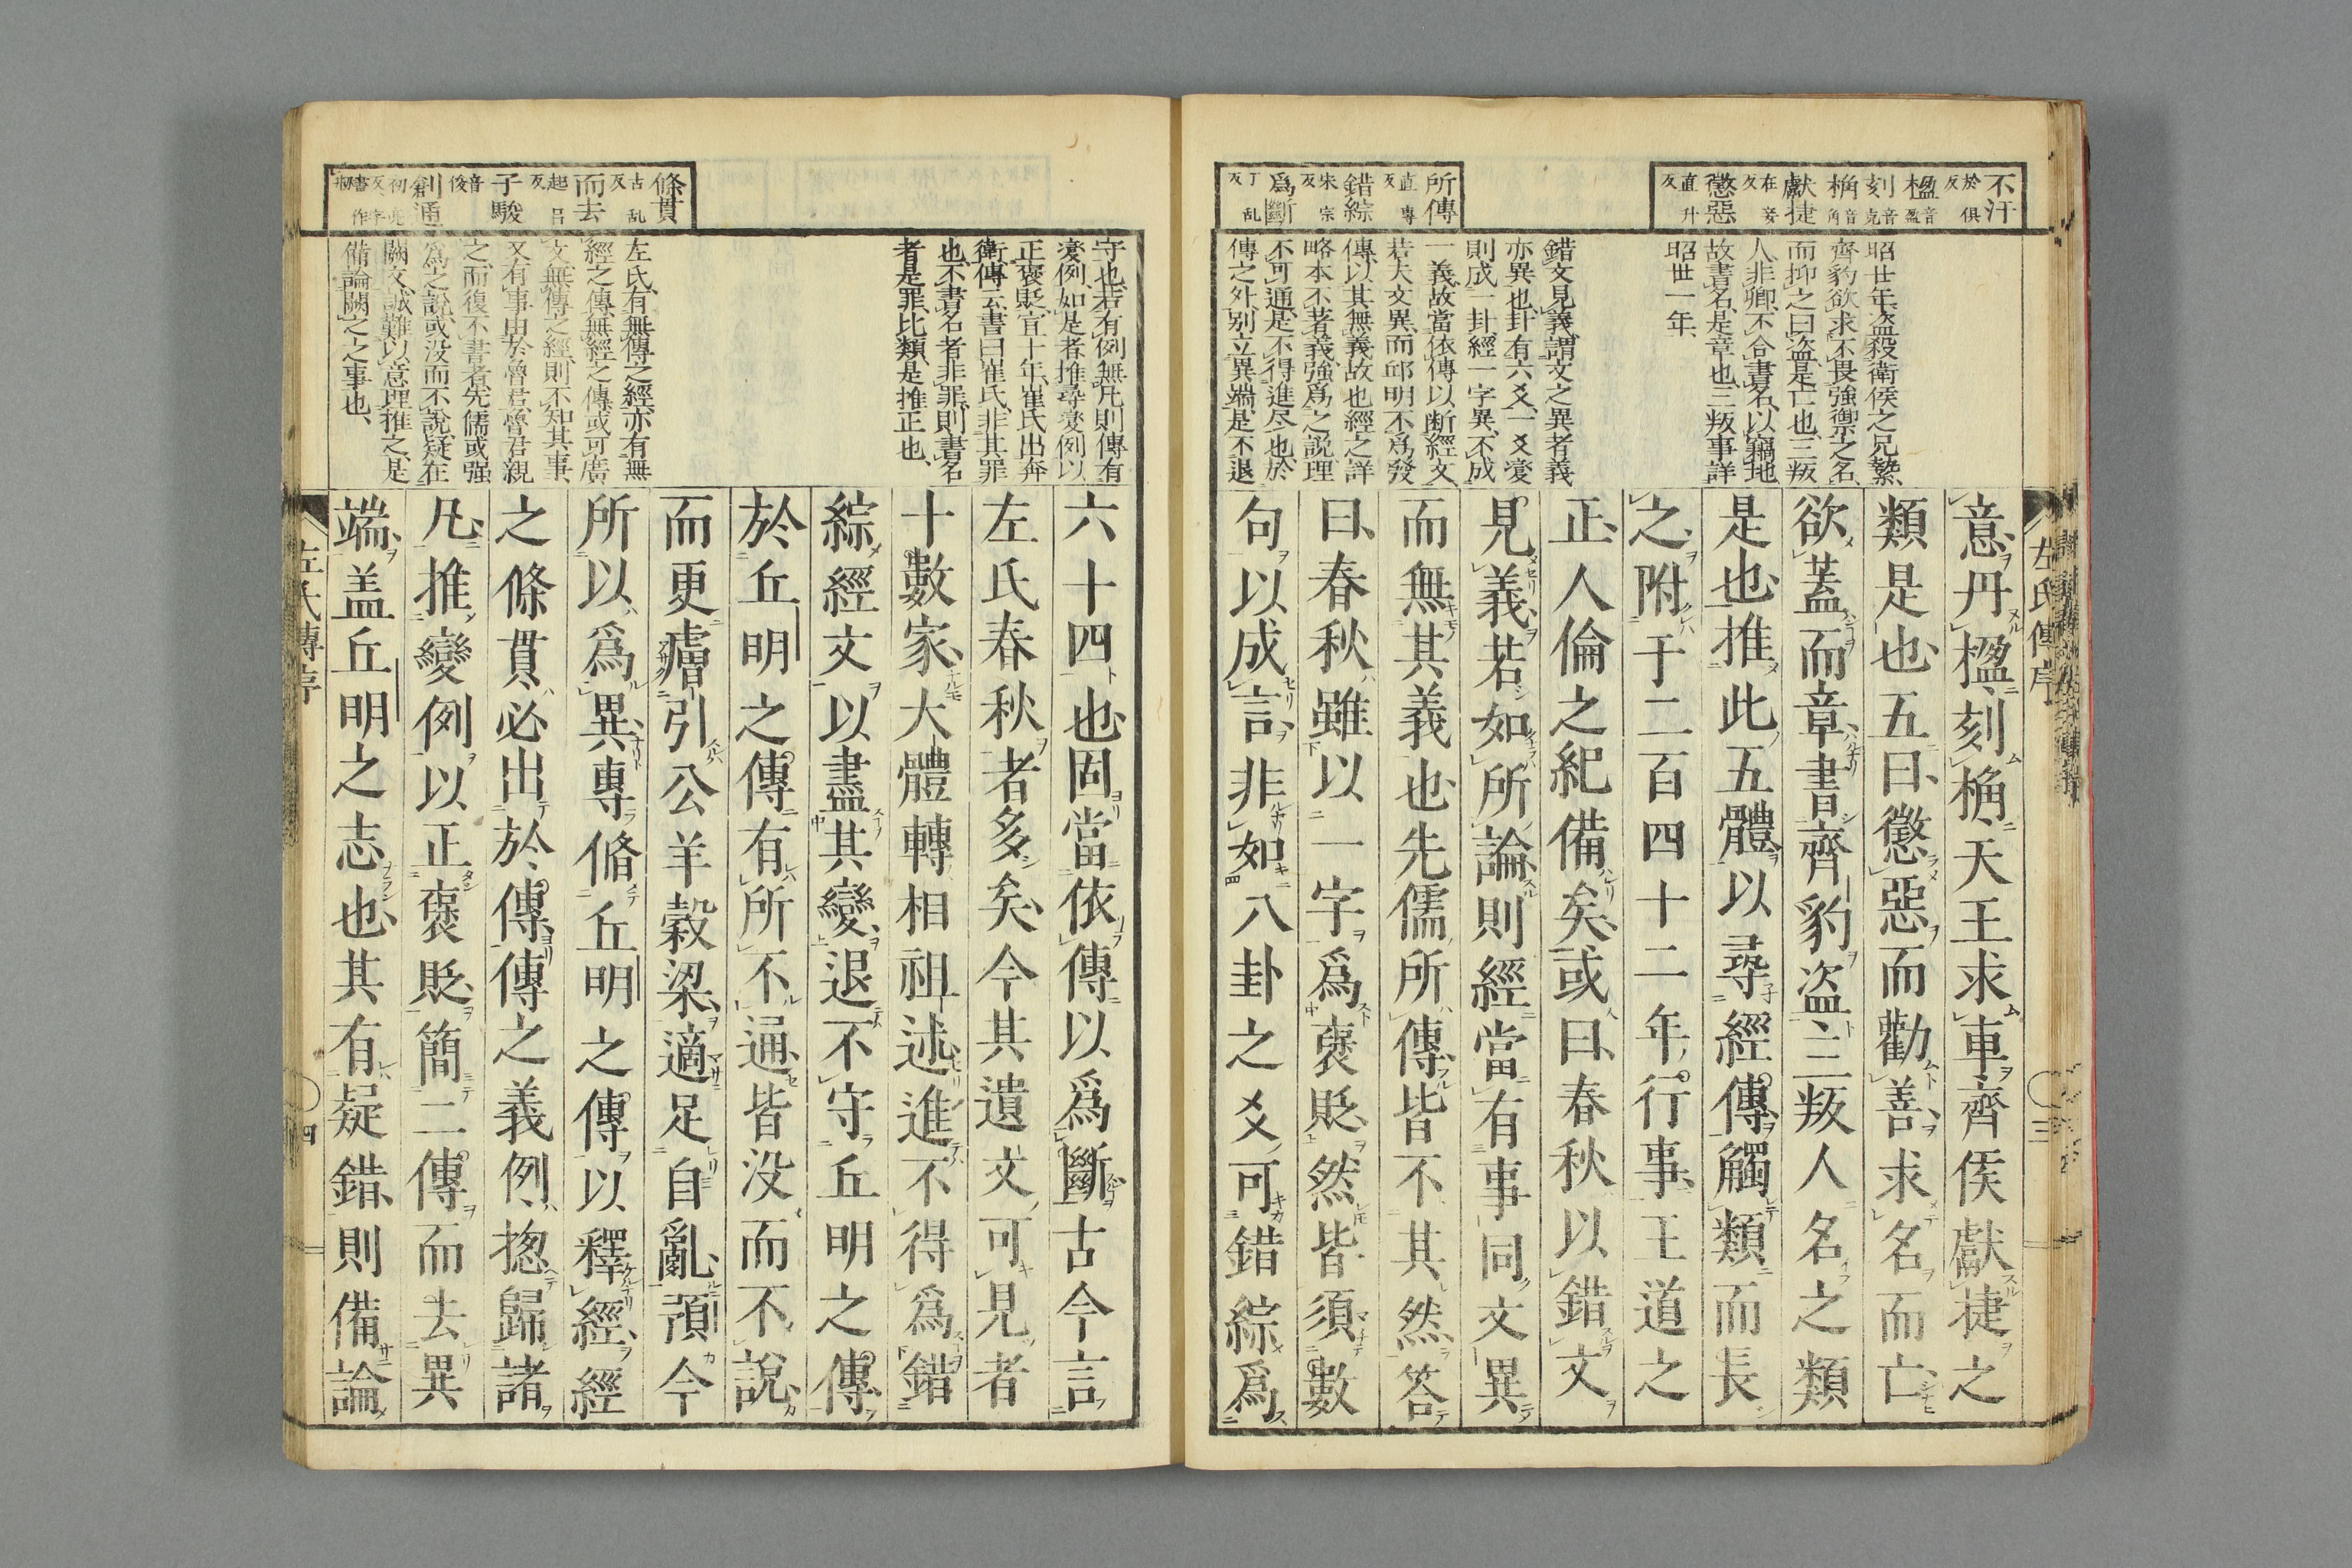 不汙 於俱反
楹 音盈
刻 音克
桷 音角
獻捷 在妾反
懲惡 直升反
所傳 直專反
錯綜 宋宗反
爲斷 丁亂反
昭廿年、盗殺衛侯之兄縶、
齊豹欲求不畏強禦之名、
而抑之曰盗是亡也、三叛
人非卿、不合書名、以竊地
故書名、是章也、三叛事詳
昭廿一年、
錯文見義、謂文之異者義
亦異也、卦有六爻、一爻変
則成一卦、經一字異、不成
一義、故當依傳以断經文
若夫文異、而邱明不爲發
傳、以其無義故也、經之詳
略本不著義、強爲之説、理
不可通、是不得進尽也、於
傳之外、别立異端、是不退
意丹楹刻桷天王求車齊侯獻捷之
類是也五曰懲惡而勸善求名而亡
欲蓋而章書齊豹盗三叛人名之類
是也推此五體以尋經傳觸類而長
之附于二百四十二年行事王道之
正人倫之紀備矣或曰春秋以錯文
見義若如所論則經當有事同文異
而無其義也先儒所傳皆不其然答
曰春秋雖以一字爲褒貶然皆須數
句以成言非如八卦之爻可錯綜爲
左氏傳序
三
條貫 古乱反
而去 起呂反
子駿 音俊
創通 初亮反
守也、若有例無凡、則傳有
変例、如是者、推尋変例以
正褒貶、宣十年、崔氏出奔
衛、傳云、書曰崔氏、非其罪
也、不書名者非罪、則書名
者是罪、比類、是推正也、
左氏有無傳之經、亦有無
經之傳、無經之傳、或可廣
文、無傳之經、則不知其事、
又有事由於魯君、魯君親
之、而復不書者、先儒或强
爲之説、或没而不説、疑在
闕文、誠難以意理推之、是
備論闕之之事也、
六十四也固當依傳以爲斷古今言
左氏春秋者多矣今其遺文可見者
十數家大體轉相祖述進不得爲錯
綜經文以盡其變退不守丘明之傳
於丘明之傳有所不通皆没而不說
而更膚引公羊穀梁適足自亂預今
所以爲異專脩丘明之傳以釋經經
之條貫必出於傳傳之義例揔歸諸
凡推變例以正褒貶簡二傳而去異
端盖丘明之志也其有疑錯則備論
左氏傳序
四